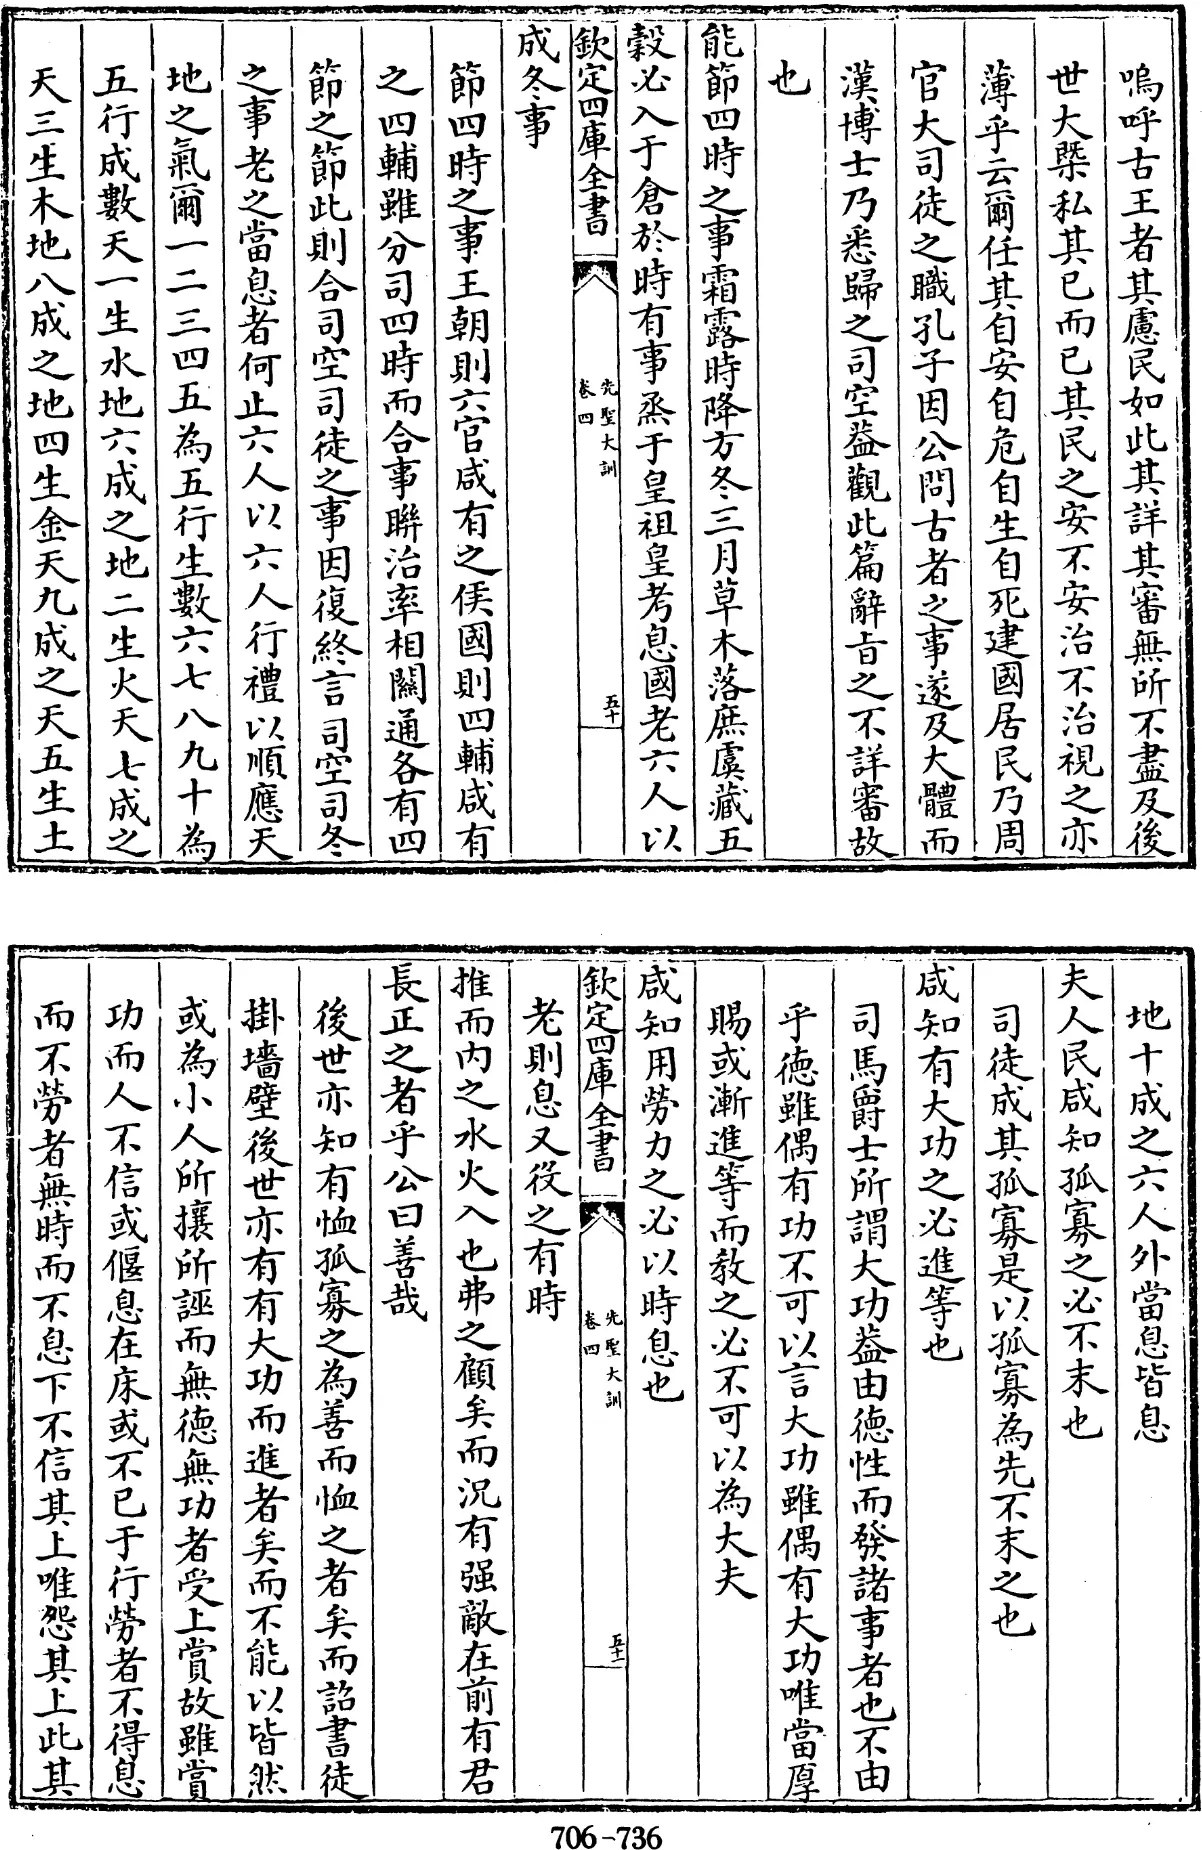 嗚呼古王者其慮民如此其詳其審無所不盡及後
世大槩私其已而已其民之安不安治不治視之亦
薄乎云爾任其自安自危自生自死建國居民乃周
官大司徒之職孔子因公問古者之事遂及大體而
漢博士乃悉歸之司空葢觀此篇辭旨之不詳審故
也
能節四時之事霜露時降方冬三月草木落庶虞藏五
穀必入于倉於時有事烝于皇祖皇考息國老六人以
欽定四庫全書
先聖大訓
卷四
五十
成冬事
節四時之事王朝則六官咸有之侯國則四輔咸有
之四輔雖分司四時而合事聯治率相關通各有四
節之節此則合司空司徒之事因復終言司空司冬
之事老之當息者何止六人以六人行禮以順應天
地之氣爾一二三四五為五行生數六七八九十為
五行成數天一生水地六成之地二生火天七成之
天三生木地八成之地四生金天九成之天五生土
地十成之六人外當息皆息
夫人民咸知孤寡之必不末也
司徒成其孤寡是以孤寡為先不末之也
咸知有大功之必進等也
司馬爵士所謂大功葢由德性而發諸事者也不由
乎德雖偶有功不可以言大功雖偶有大功唯當厚
賜或漸進等而教之必不可以為大夫
咸知用勞力之必以時息也
欽定四庫全書
先聖大訓
卷四
五十一
老則息又役之有時
推而内之水火入也弗之顧矣而況有强敵在前有君
長正之者乎公曰善哉
後世亦知有恤孤寡之為善而恤之者矣而詔書徒
掛墻壁後世亦有有大功而進者矣而不能以皆然
或為小人所攘所誣而無德無功者受上賞故雖賞
功而人不信或偃息在床或不已于行勞者不得息
而不勞者無時而不息下不信其上唯怨其上此其
706-736